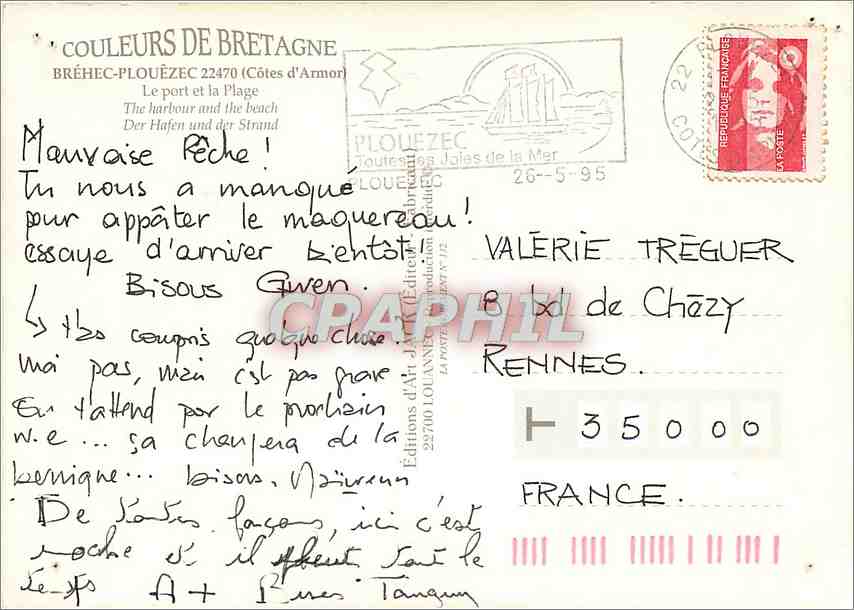 COULEURS DE BRETAGNE
BRÉHEC-PLOUËZEC 22470 (Côtes d'Armor)
Le port et la Plage
The harbour and the beach
Der Hafen und der Strand
PLOUEZEC
Toutes les Joies de la Mer
PLOUEZEC 26--5-95
22
REPUBLIQUE FRANÇAISE
LA POSTE
Mauvaise Pêche !
Tu nous a manqué
pour appâter le maquereau !
essaye d'arriver bientôt !
Bisous Gwen.
↳ t'as compris quelque chose ?
moi pas, mais c'est pas grave -
On t'attend par le prochain
w.e ... ça changera de la
bernique ... bisous,
De toutes façons, ici c'est
moche et il pleut tout le
temps A + Bises Tanguy
Éditions d'Art JACK (Éditeur - Fabricant)
22700 LOUANNEC Reproduction interdite
LA POSTE AGRÉMENT N° 112
CPARHIL
VALÉRIE TRÉGUER
8 bd de Chézy
RENNES.
35000
FRANCE.